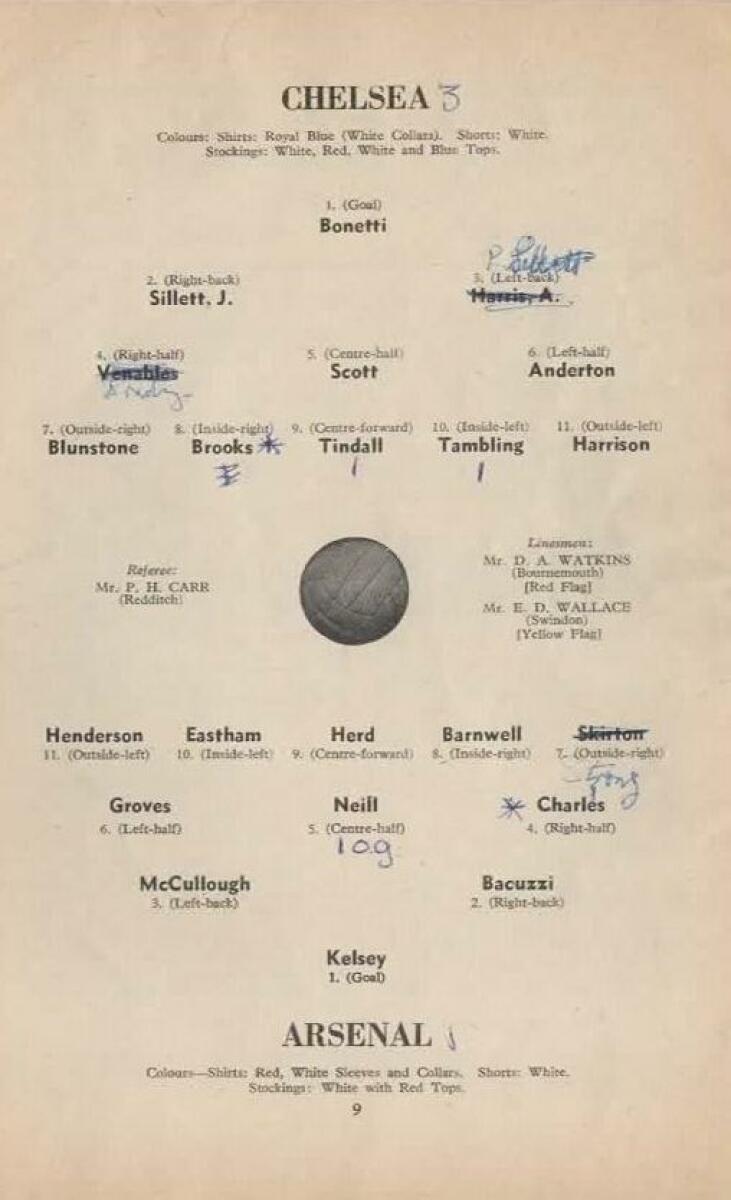 CHELSEA 3
Colours: Shirts: Royal Blue (White Collars). Shorts: White.
Stockings: White, Red, White and Blue Tops.
1. (Goal)
Bonetti
P. Sillett
2. (Right-back) 3. (Left-back)
Sillett, J. Harris, A.
4. (Right-half) 5. (Centre-half) 6. (Left-half)
Venables Scott Anderton
7. (Outside-right) 8. (Inside-right) 9. (Centre-forward) 10. (Inside-left) 11. (Outside-left)
Blunstone Brooks * Tindall Tambling Harrison
1 1
Referee:
Mr. P. H. CARR
(Redditch)
Linesmen:
Mr. D. A. WATKINS
(Bournemouth)
[Red Flag]
Mr. E. D. WALLACE
(Swindon)
[Yellow Flag]
Henderson Eastham Herd Barnwell Skirton
11. (Outside-left) 10. (Inside-left) 9. (Centre-forward) 8. (Inside-right) 7. (Outside-right)
Groves Neill * Charles
6. (Left-half) 5. (Centre-half) 4. (Right-half)
1 og
McCullough Bacuzzi
3. (Left-back) 2. (Right-back)
Kelsey
1. (Goal)
ARSENAL 1
Colours—Shirts: Red, White Sleeves and Collars. Shorts: White.
Stockings: White with Red Tops.
9